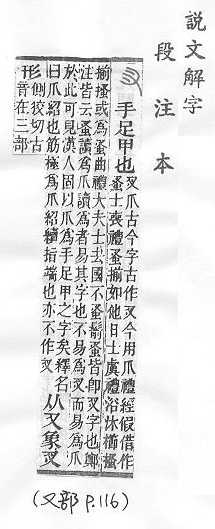 說文解字
段注本
手足甲也
叉爪古今字古作叉今用爪禮經假借作
蚤士喪禮蚤揃如他日士虞禮浴沐櫛搔
揃搔或爲蚤曲禮大夫士去國不蚤鬋蚤皆卽叉字也鄭
注皆云蚤讀爲爪讀爲者易其字也不易爲叉而易爲爪
於此可見漢人固以爪爲手足甲之字矣釋名
曰爪紹也筋極爲爪紹續指端也亦不作叉
从又象叉
形
側狡切古
音在三部
(又部 P.116)